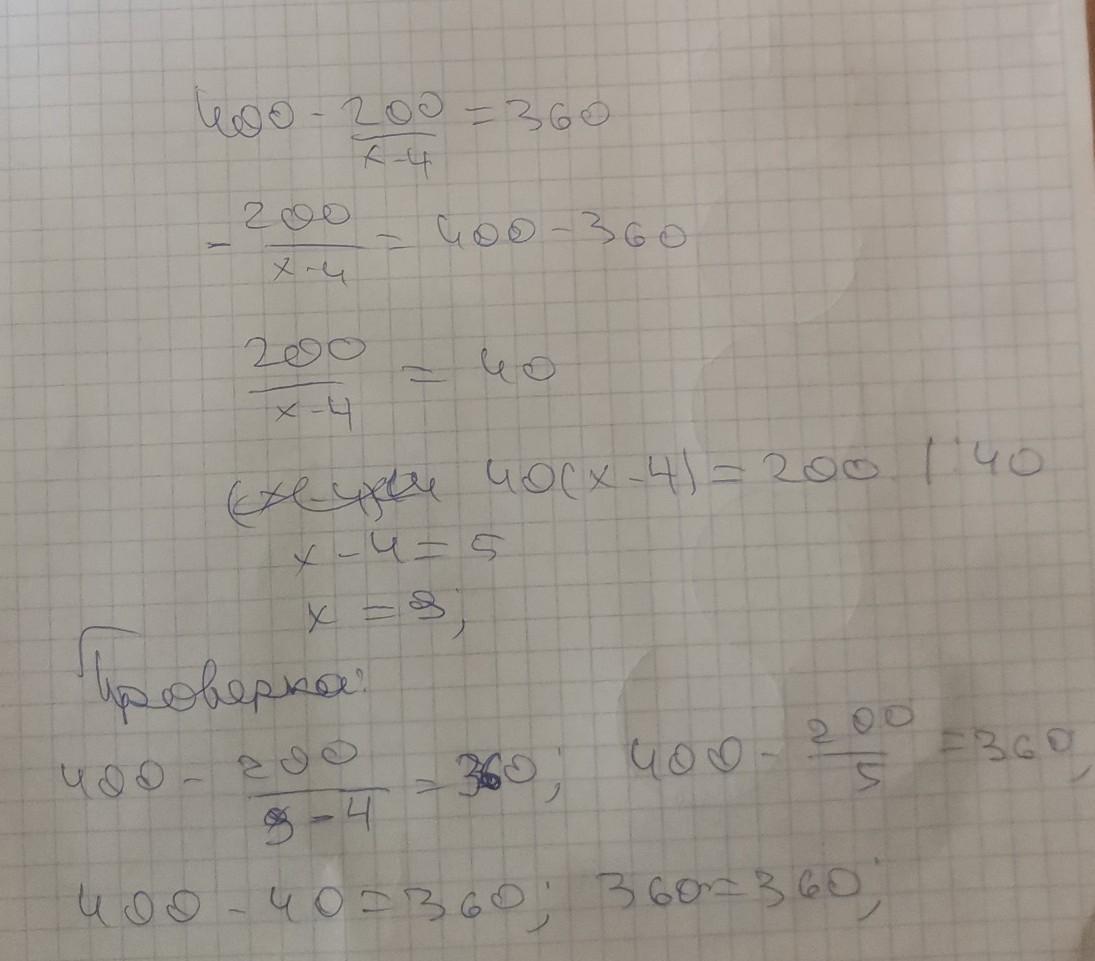 400 - 200/(x-4) = 360
- 200/(x-4) = 400 - 360
200/(x-4) = 40
40(x-4) = 200 | : 40
x - 4 = 5
x = 9;
Проверка:
400 - 200/(9-4) = 360; 400 - 200/5 = 360;
400 - 40 = 360; 360 = 360;